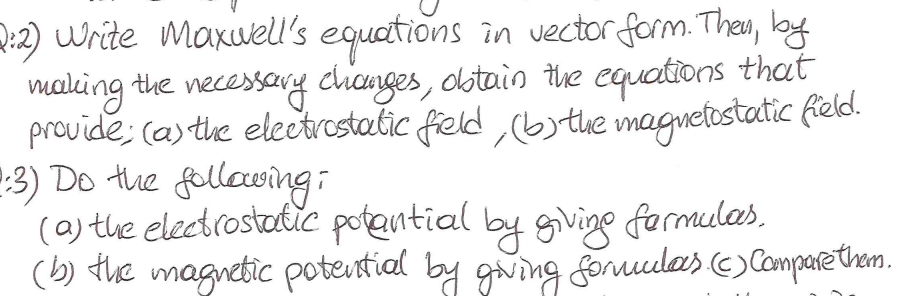 2:2) Write Maxwell's equations in vector form. Then, by
making the necessary changes, obtain the equations that
provide; (a) the electrostatic field, (b) the magnetostatic field.
:3) Do the following;
(a) the electrostatic potantial by giving formulas.
(b) the magnetic potential by giving formulas. (c) Compare them.